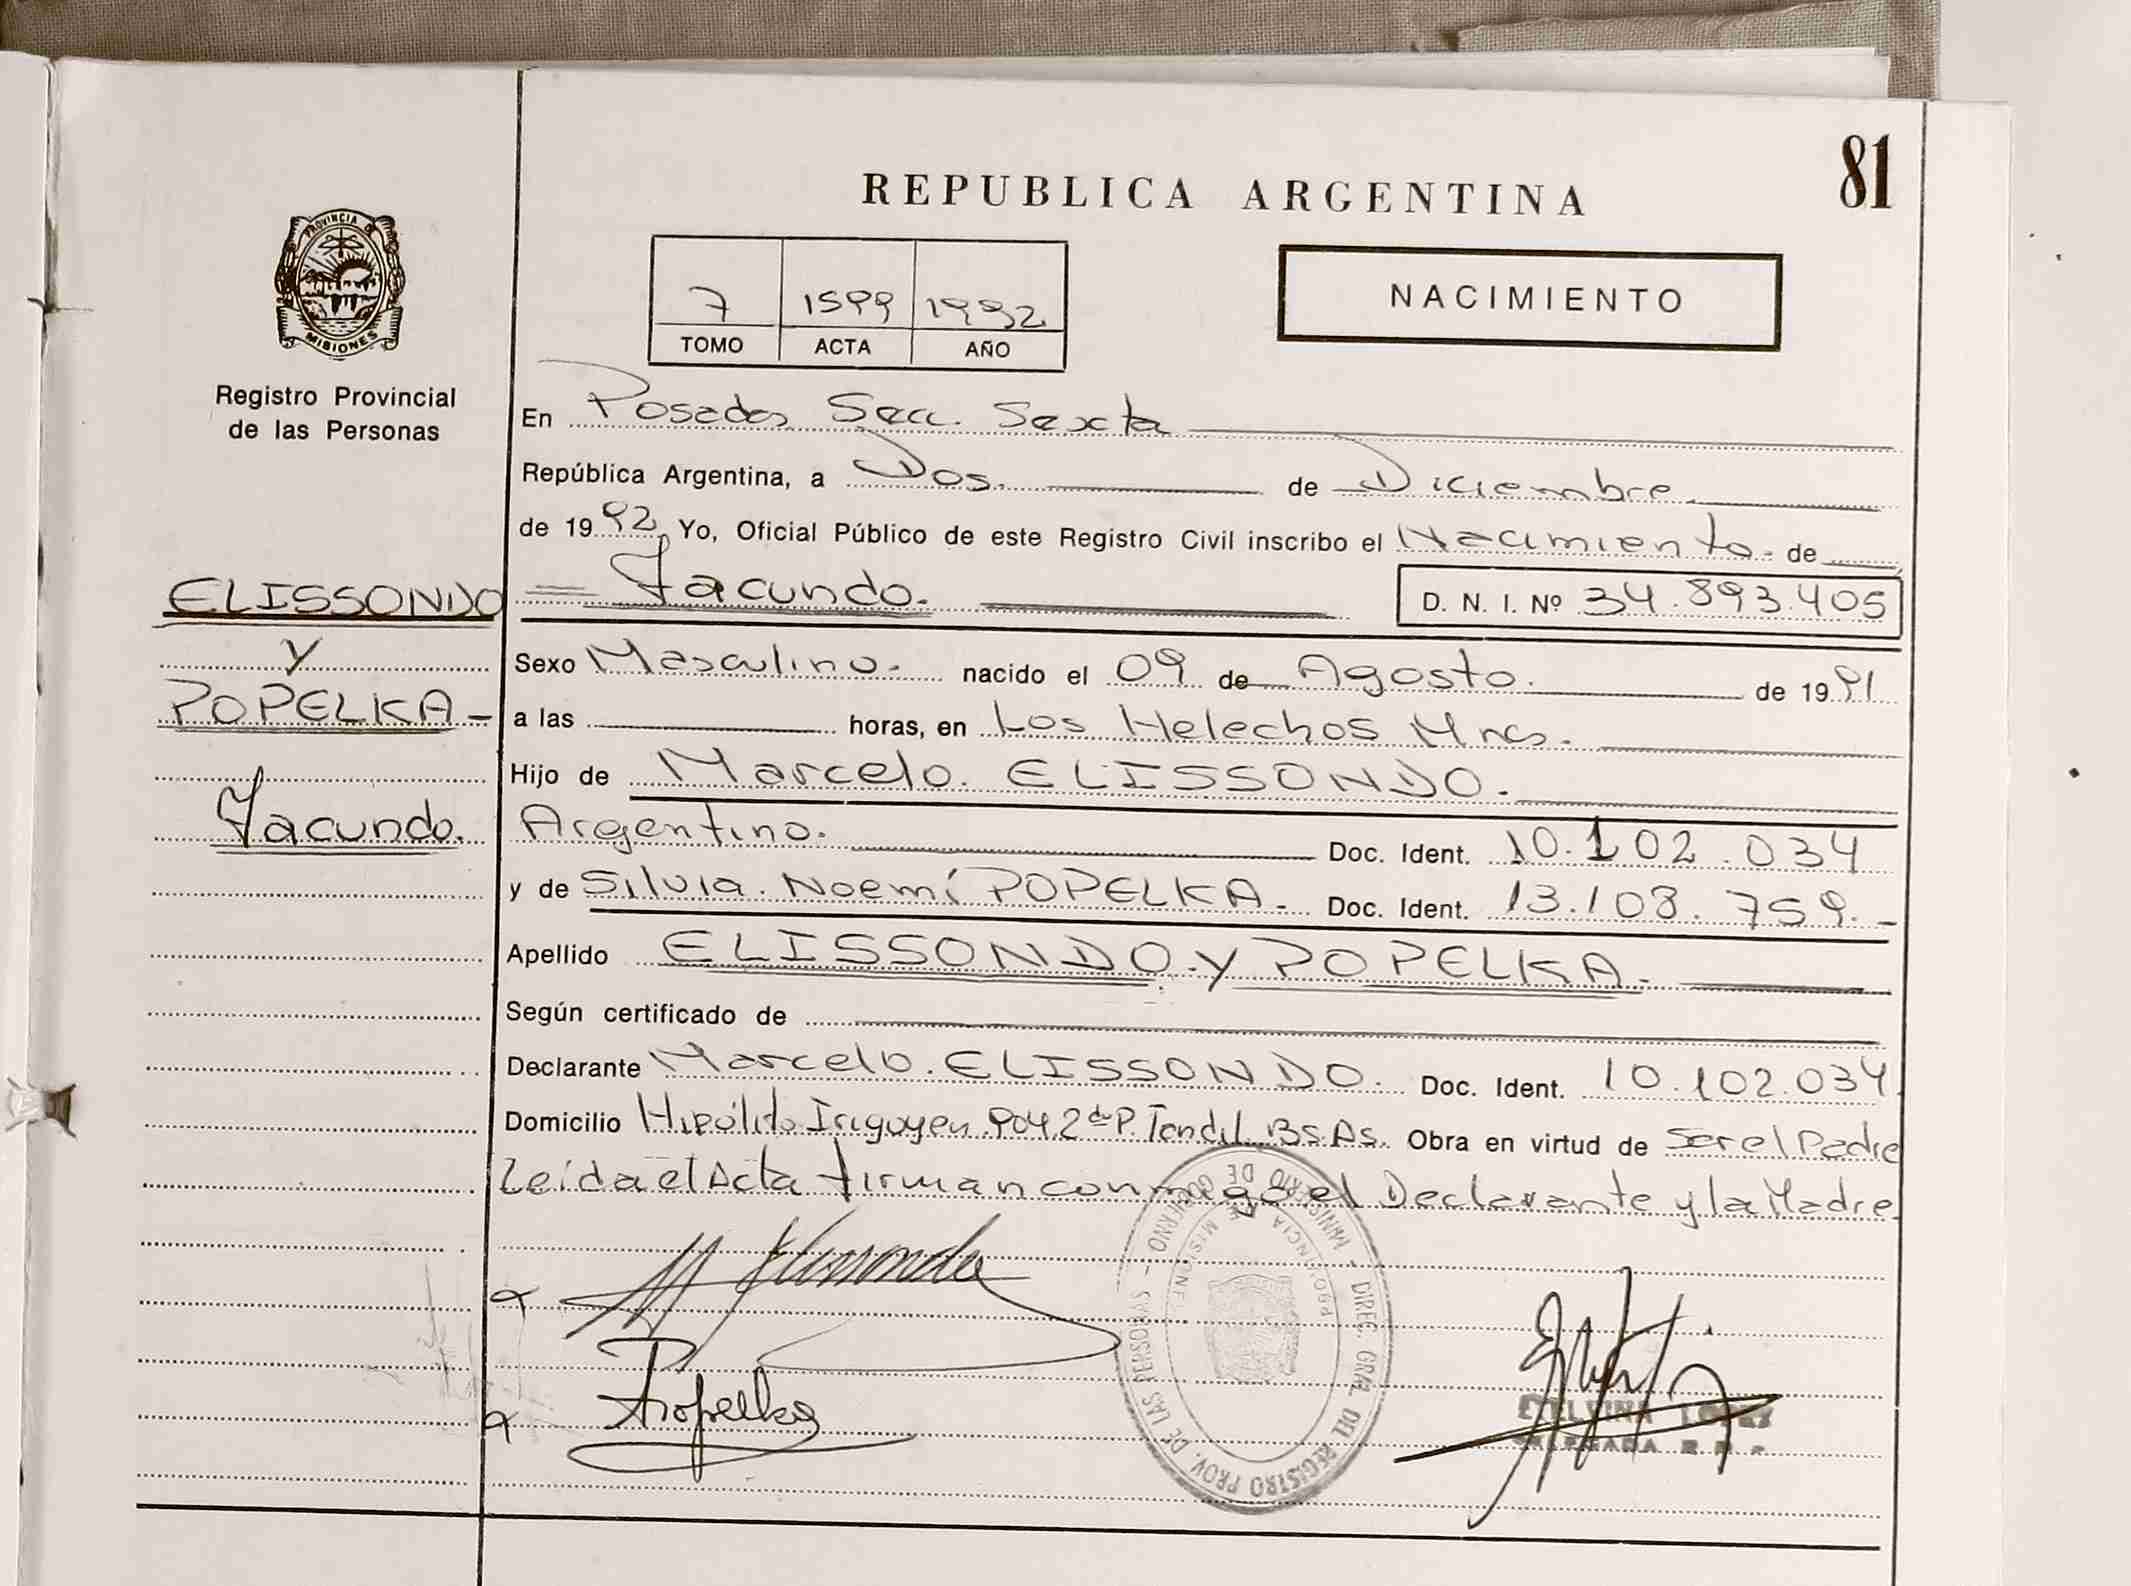 81
REPUBLICA ARGENTINA
PROVINCIA DE
MISIONES
7 1599 1992
TOMO ACTA AÑO
NACIMIENTO
Registro Provincial
de las Personas
En Posadas Secc. Sexta
República Argentina, a Dos. de Diciembre.
de 1992, Yo, Oficial Público de este Registro Civil inscribo el Nacimiento.- de
ELISSONDO
Y
POPELKA -
Facundo.
= Facundo.
D. N. I. Nº 34.893.405
Sexo Masculino.- nacido el 09 de Agosto. de 1991
a las horas, en Los Helechos Mnes.
Hijo de Marcelo. ELISSONDO.
Argentino. Doc. Ident. 10.102.034
y de Silvia. Noemí POPELKA.- Doc. Ident. 13.108.759.-
Apellido ELISSONDO.Y POPELKA.
Según certificado de
Declarante Marcelo. ELISSONDO. Doc. Ident. 10.102.034
Domicilio Hipólito Irigoyen 904 2do P. Tandil Bs.As. Obra en virtud de Ser el Padre
Leída el Acta firman conmigo el Declarante y la Madre
M Elissondo
Popelka
MINISTERIO DE GOBIERNO - DIREC. GRAL. DEL REGISTRO PROV. DE LAS PERSONAS -
PROVINCIA DE MISIONES
LOPEZ